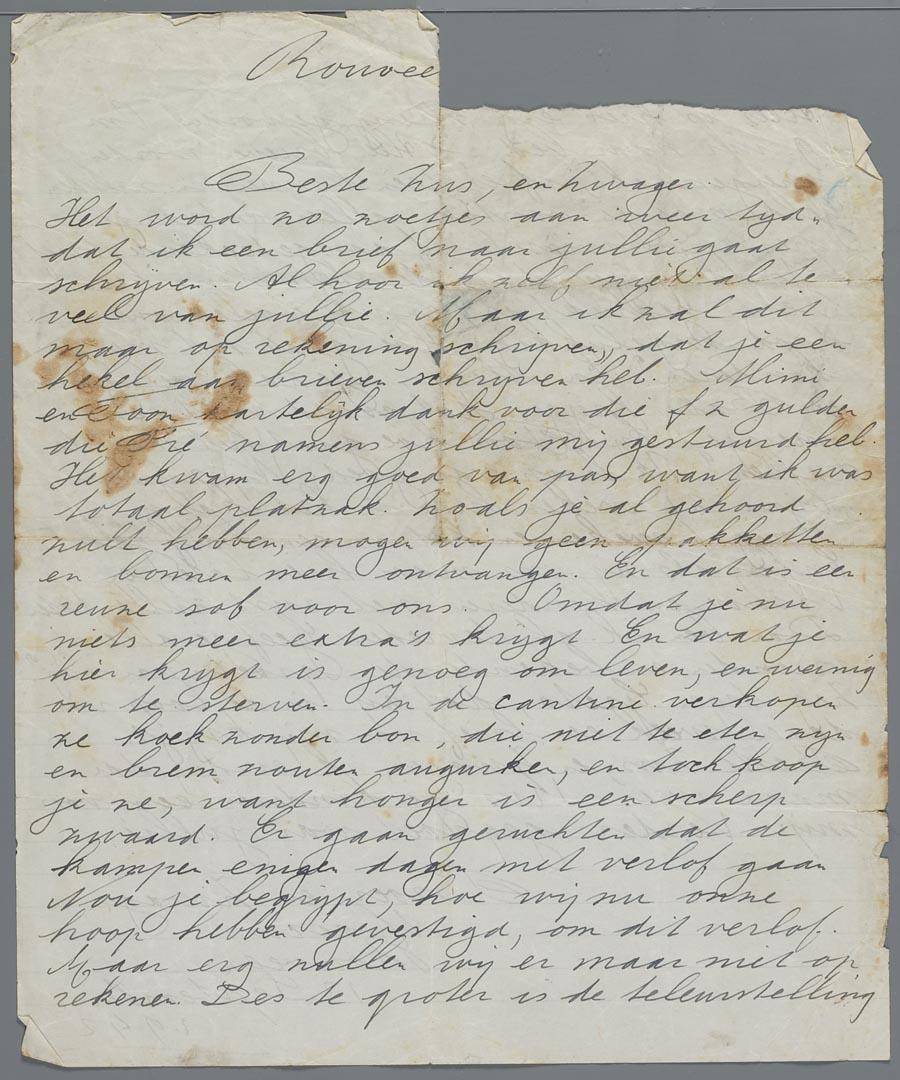 Rouvee
Beste Zus, en Zwager.
Het word zo zoetjes aan weer tyd.
dat ik een brief naar jullie gaat
schrijven. Al hoor ik zelf niet al te
veel van jullie. Maar ik zal dit
maar op rekening schrijven, dat je een
hekel aan brieven schryven heb. Mimi
en Toon hartelijk dank voor die f 2 gulden
die Pré namens jullie mij gestuurd heb.
Het kwam erg goed van pas want ik was
totaal platzak. Zoals je al gehoord
zult hebben, mogen wij geen pakketten
en bonnen meer ontvangen. En dat is een
reuze sof voor ons. Omdat je nu
niets meer extra's krygt. En wat je
hier krygt is genoeg om leven, en weinig
om te sterven. In de cantine verkopen
ze koek zonder bon, die niet te eten zyn
en brem zouten augurken, en toch koop
je ze, want honger is een scherp
zwaard. Er gaan geruchten dat de
kampen enigen dagen met verlof gaan
Nou je begrypt, hoe wij nu onze
hoop hebben gevestigd, om dit verlof.
Maar erg zullen wij er maar niet op
rekenen. Des te groter is de teleurstelling